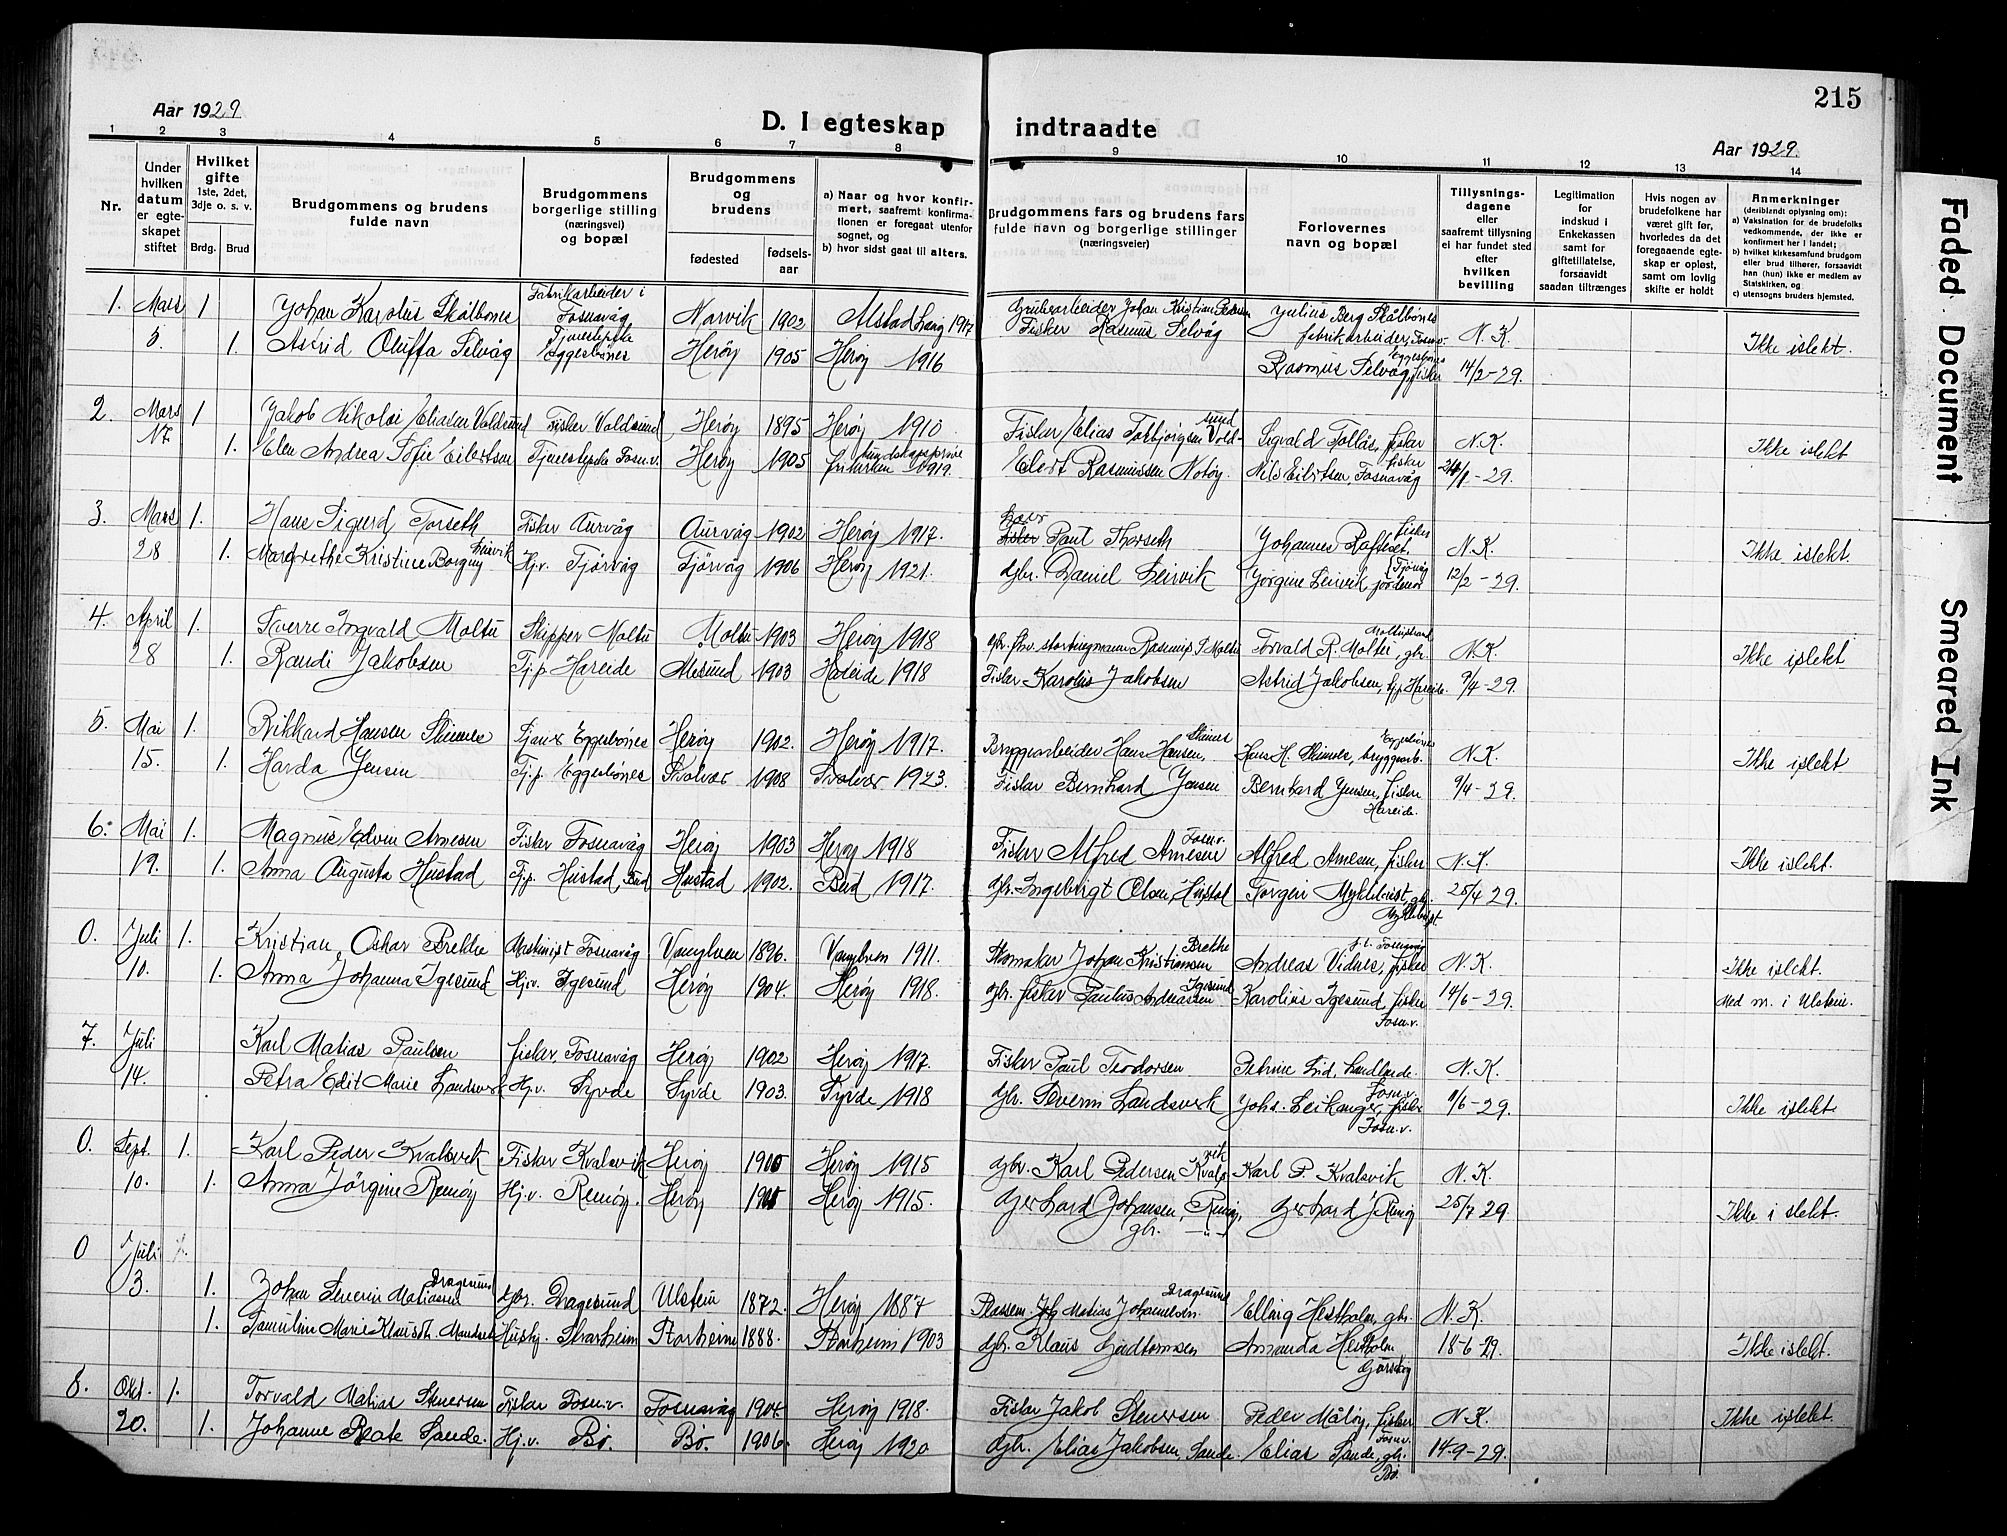 215
Aar 1929
D. I egteskap indtraadte
Aar 1929.
1 2 3 4 5 6 7 8 9 10 11 12 13 14
Nr.
Under hvilken datum er egte-skapet stiftet
Hvilket gifte 1ste, 2det, 3dje o. s. v.
Brdg. Brud
Brudgommens og brudens fulde navn
Brudgommens borgerlige stilling (næringsvei) og bopæl
Brudgommens og brudens
fødested fødsels-aar
a) Naar og hvor konfir-mert, saafremt konfirma-tionen er foregaat utenfor sognet, og
b) hvor sidst gaat til alters.
Brudgommens fars og brudens fars fulde navn og borgerlige stillinger (næringsveier)
Forlovernes navn og bopæl
Tillysnings-dagene eller saafremt tillysning ei har fundet sted efter hvilken bevilling
Legitimation for indskud i Enkekassen samt for giftetillatelse, forsaavidt saadan tiltrænges
Hvis nogen av brudefolkene har været gift før, hvorledes da det foregaaende egte-skap er opløst, samt om lovlig skifte er holdt
Anmerkninger (deriblandt oplysning om):
a) Vaksination for de brudefolks vedkommende, der ikke er konfirmert her i landet;
b) hvilket kirkesamfund brudgom eller brud tilhører, forsaavidt han (hun) ikke er medlem av Statskirken, og
c) utensogns bruders hjemsted.
1. Mars 1 Johan Karolus Skålbones Fabrikarbeider i Fosnavåg Narvik 1902 Alstadhaug 1917 Grubearbeider Johan Kristian Pedersen Julius Berg Skålbones fabrikarbeider, Fosnv. N.K.
5. 1. Astrid Oluffa Selvåg Tjenestepike Eggesbönes Herøy 1905 Herøy 1916 Fisker Rasmus Selvåg Rasmus Selvåg, fisker Eggesbönes 14/2-29. Ikke i slekt.
2. Mars 1 Jakob Nikolai Eliasen Voldsund Fisker Voldsund Herøy 1895 Herøy 1910 Fisker Elias Torbjörgsen Voldsund Sigvald Tollås, fisker N.K.
17 1. Elen Andrea Sofie Eilertsen Tjenestepike Fosn.v. Herøy 1905 kundskapsprøve frikirken 1919. Eilert Rasmussen Notøy. Nils Eilertsen, fisker Fosnavåg 24/1-29. Ikke i slekt
3. Mars 1. Hans Sigurd Torseth Fisker Aurvåg Aurvåg 1902 Herøy 1917. Paul Thorseth Johannes Rafteset, fisker N.K.
28 1. Margrethe Kristine Borgny Leinvik Hj.v. Tjörvåg Tjörvåg 1906 Herøy 1921. Gbr. Daniel Leirvik Jorgine Leirvik, Tjörvåg jordmor 12/2-29. Ikke i slekt
4. April 1. Sverre Ingvald Moltu Skipper Moltu Moltu 1903 Herøy 1918 gbr. fhv. stortingsmann Rasmus S. Moltu Torvald R. Moltu, gbr. Moltustrand N.K.
28 1. Randi Jakobsen Tj.p. Hareide Alesund 1903 Hareide 1918 Fisker Karolus Jakobsen Astrid Jakobsen, tj.p. Hareide. 9/4-29. Ikke i slekt
5. Mai 1. Rikkard Hansen Skinnes Eggesbönes Herøy 1902. Herøy 1917. Bryggearbeider Hans Hansen Skinnes Hans H. Skinnes, bryggearb. Eggesbönes N.K.
15. 1. Harda Jensen Tj.p. Eggesbönes Svolvær 1908 Svolvær 1923. Fisker Bernhard Jensen Bernhard Jensen, fisker Hareide. 9/4-29. Ikke i slekt
6. Mai 1. Magnus Edvin Arnesen Fisker Fosnavåg Herøy 1903 Herøy 1918 Fisker Alfred Arnesen Fosn.v. Alfred Arnesen, fisker N.K.
19. 1. Anna Augusta Hustad Tj.p. Hustad, Bud Hustad 1902. Bud 1917. Gbr. Ingebrigt Olsen Hustad Torgeir Myklebust, gbr. Myklebust 25/4 29. Ikke i slekt.
0. Juli 1. Kristian Oskar Brekke Maskinist Fosnavåg Vanylven 1896. Vanylven 1911. Skomaker Johan Kristiansen Brekke Andreas Vidnes, fisker Fosnavåg N.K. Ikke i slekt.
10. 1. Anna Johanna Igesund Hj.v. Igesund Herøy 1904. Herøy 1918. Gbr. fisker Paulus Andreassen Igesund Karolius Igesund, fisker Fosn.v. 14/6-29. Med m. i Ulstein.
7. Juli Karl Matias Paulsen fisker Fosnavåg Herøy 1902 Herøy 1917. Fisker Paul Teodorsen Petrine Eid, Fosn.v. N.K.
14. Petra Edit Marie Landsverk Hj.v. Syvde Syvde 1903. Syvde 1918 Gbr. Severin Landsverk Johs. Leikanger, fisker Fosn.v. 11/6-29. Ikke i slekt
0. Sept. 1. Karl Peder Kvalsvik Fisker Kvalsvik Herøy 1900 Herøy 1915 Gbr. Karl Pedersen Kvalsvik Karl P. Kvalsvik N.K.
10. 1. Anna Jörgine Remøy Hj.v. Remøy. Herøy Herøy 1915. Gerhard Johansen, Remøy, gbr. Gerhard J. Remøy 25/7 29. Ikke i slekt.
0 Juli
3. 1. Johan Severin Matiassen Dragesund Gbr. Dragesund Ulstein 1872. Herøy 1887 Matias Johannessen Dragesund Elling Hestholm, gbr. N.K.
1. Marie Storheim 1888. Storheim 1903 Gbr. Klaus Gudtormsen Amanda Hestholm 18-6-29. Ikke i slekt.
8. Okt. 1. Torvald Matias Stenersen Fisker Fosn.v. Fosnavåg 1904. Herøy 1918. Fisker Jakob Stenersen Peder Måløy, fisker Fosn.v. N.K.
20. 1. Johanne Beate Sande. Hj.v. Bø. Bø. 1906. Herøy 1920 Gbr. Elias Jakobsen, Sande. Elias Sande, gbr. Bø. 14-9-29. Ikke i slekt.
Faded Document
Smeared Ink